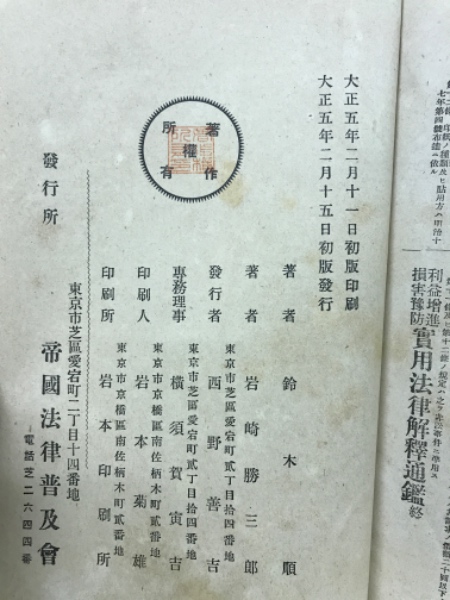 利益增進
損害豫防
實用法律解釋通鑑 終
大正五年二月十一日初版印刷
大正五年二月十五日初版發行
著作
權
所有
著者 鈴木順
著者 岩崎勝三郎
東京市芝區愛宕町貳丁目拾四番地
發行者 西野善吉
東京市芝區愛宕町貳丁目拾四番地
專務理事 橫須賀寅吉
東京市京橋區南佐柄木町貳番地
印刷人 岩本菊雄
東京市京橋區南佐柄木町貳番地
印刷所 岩本印刷所
發行所
東京市芝區愛宕町二丁目十四番地
帝國法律普及會
電話芝二六四四番